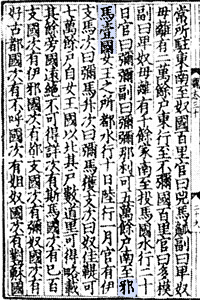 常所駐東南至奴國百里官曰兕馬觚副曰卑奴
母離有二萬餘戶東行至不彌國百里官曰多模
副曰卑奴母離有千餘家南至投馬國水行二十
日官曰彌彌副曰彌彌那利可五萬餘戶南至邪
馬壹國女王之所都水行十日陸行一月官有伊
支馬次曰彌馬升次曰彌馬獲支次曰奴佳鞮可
七萬餘戶自女王國以北其戶數道里可得略載
其餘旁國遠絕不可得詳次有斯馬國次有已百
支國次有伊邪國次有都支國次有彌奴國次有
好古都國次有不呼國次有姐奴國次有對蘇國